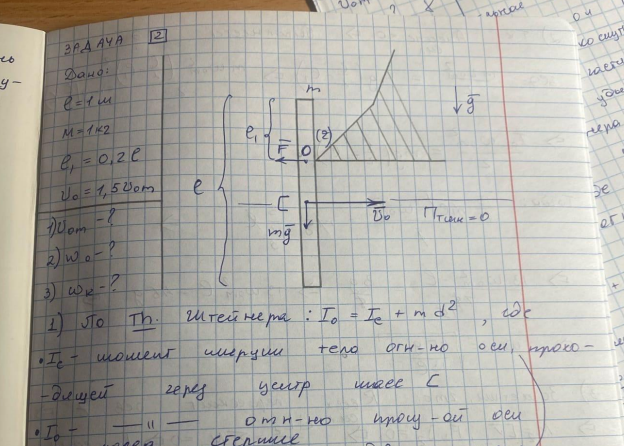 ЗАДАЧА 2
Дано:
ℓ = 1 м
m = 1 кг
ℓ₁ = 0,2 ℓ
υ₀ = 1,5 υ₀m
1) υ₀m - ?
2) ω₀ - ?
3) ωк - ?
m
ℓ₁
F̄
O
(2)
ḡ
ℓ
C
mḡ
ῡ₀
= 0
1) По Th. Штейнера : I₀ = I_c + md² , где
• I_c - момент инерции тела отн-но оси, прохо-
-дящей через центр масс C
• I₀ - —— " —— отн-но прош-ой оси
стержня